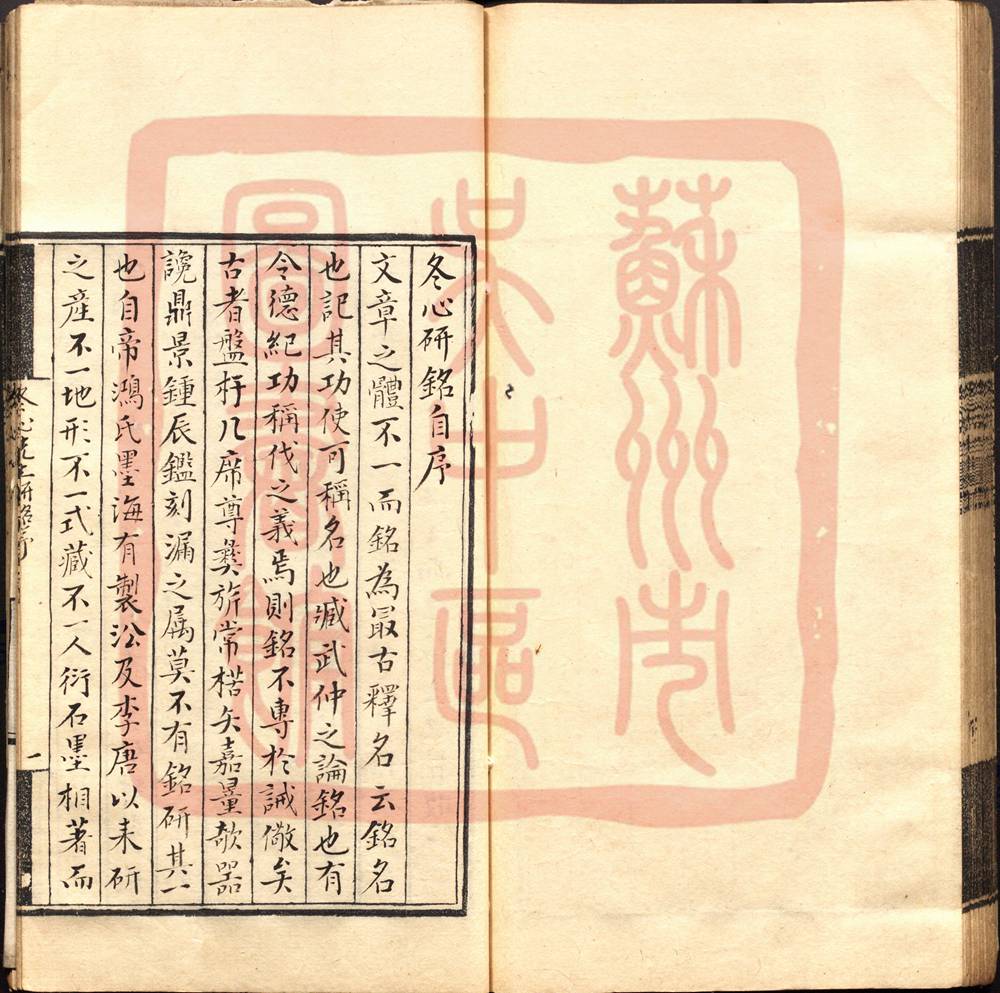 冬心研銘自序
文章之體不一而銘為最古釋名云銘名
也記其功使可稱名也臧武仲之論銘也有
令德紀功稱伐之義焉則銘不專於誡儆矣
古者盤杅几席尊彜旂常楛矢嘉量欹器
讒鼎景鍾辰鑑刻漏之属莫不有銘研其一
也自帝鴻氏墨海有製㳂及李唐以来研
之產不一地形不一式藏不一人衍石墨相著而
冬心先生研銘序
一
蘇州市
吴中區
圖書館